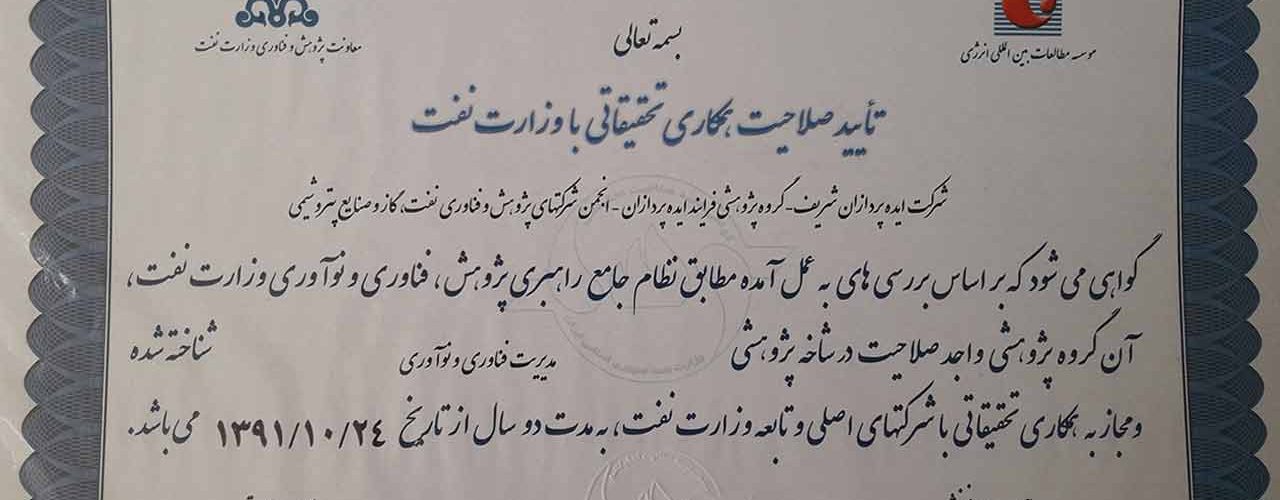 بسمه تعالی
موسسه مطالعات بین المللی انرژی
معاونت پژوهش و فناوری وزارت نفت
تأیید صلاحیت همکاری تحقیقاتی با وزارت نفت
شرکت ایده پردازان شریف - گروه پژوهشی فرایند ایده پردازان - انجمن شرکتهای پژوهش و فناوری نفت، گاز و صنایع پتروشیمی
گواهی می شود که بر اساس بررسی های به عمل آمده مطابق نظام جامع راهبری پژوهش، فناوری و نوآوری وزارت نفت،
آن گروه پژوهشی واجد صلاحیت در شاخه پژوهشی مدیریت فناوری و نوآوری شناخته شده
و مجاز به همکاری تحقیقاتی با شرکتهای اصلی و تابعه وزارت نفت، به مدت دو سال از تاریخ ۱۳۹۱/۱۰/۲٤ می باشد.